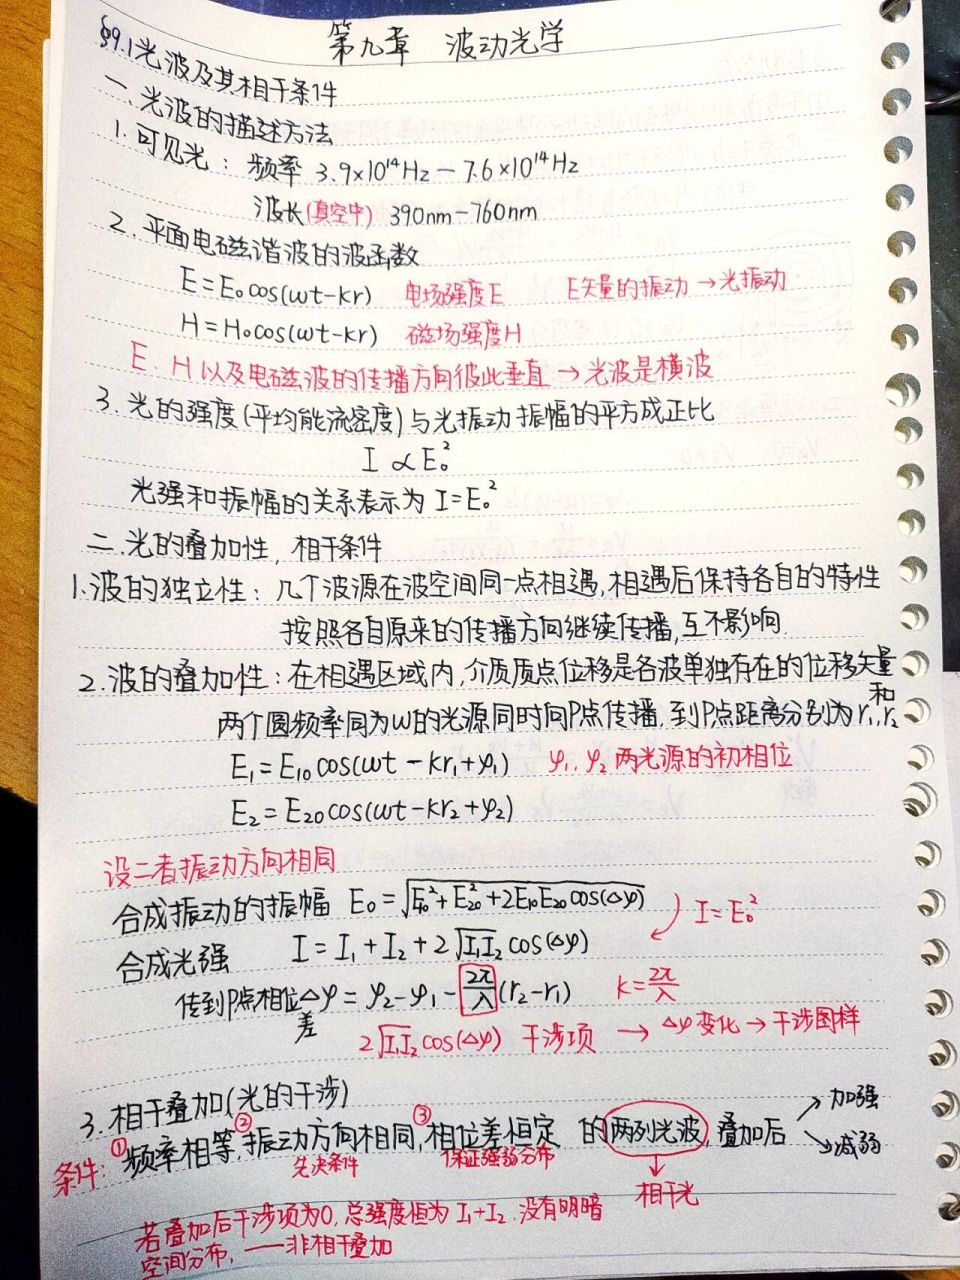 第九章 波动光学
§9.1光波及其相干条件
一.光波的描述方法
1.可见光：频率 3.9×10¹⁴Hz－7.6×10¹⁴Hz
波长(真空中) 390nm－760nm
2.平面电磁谐波的波函数
E=E₀cos(ωt-kr) 电场强度E E矢量的振动→光振动
H=H₀cos(ωt-kr) 磁场强度H
E、H以及电磁波的传播方向彼此垂直→光波是横波
3.光的强度(平均能流密度)与光振动振幅的平方成正比
I∝E₀²
光强和振幅的关系表示为 I=E₀²
二.光的叠加性、相干条件
1.波的独立性：几个波源在波空间同一点相遇,相遇后保持各自的特性
按照各自原来的传播方向继续传播,互不影响.
2.波的叠加性：在相遇区域内,介质质点位移是各波单独存在的位移矢量和
两个圆频率同为ω的光源同时向P点传播,到P点距离分别为r₁,r₂
E₁=E₁₀cos(ωt-kr₁+φ₁) φ₁、φ₂两光源的初相位
E₂=E₂₀cos(ωt-kr₂+φ₂)
设二者振动方向相同
合成振动的振幅 E₀=√(E₁₀²+E₂₀²+2E₁₀E₂₀cos(Δφ)) I=E₀²
合成光强 I=I₁+I₂+2√(I₁I₂)cos(Δφ)
传到P点相位差Δφ=φ₂-φ₁-2π/λ(r₂-r₁) k=2π/λ
2√(I₁I₂)cos(Δφ) 干涉项→Δφ变化→干涉图样
3.相干叠加(光的干涉)
条件：①频率相等,②振动方向相同,③相位差恒定 的两列光波,叠加后 ↗加强 ↘减弱
先决条件 保证强弱分布 ↓相干光
若叠加后干涉项为0,总强度恒为I₁+I₂.没有明暗
空间分布,——非相干叠加